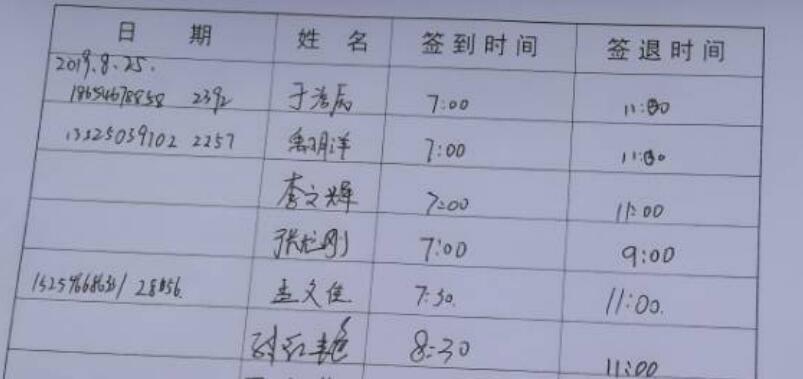 日 期 姓 名 签到时间 签退时间
2019.8.25.
18654678858 2392 7:00 11:00
13325039102 2257 禹明洋 7:00 11:00
李文辉 7:00 11:00
张龙刚 7:00 9:00
孟文佳 7:30. 11:00.
8:30 11:00